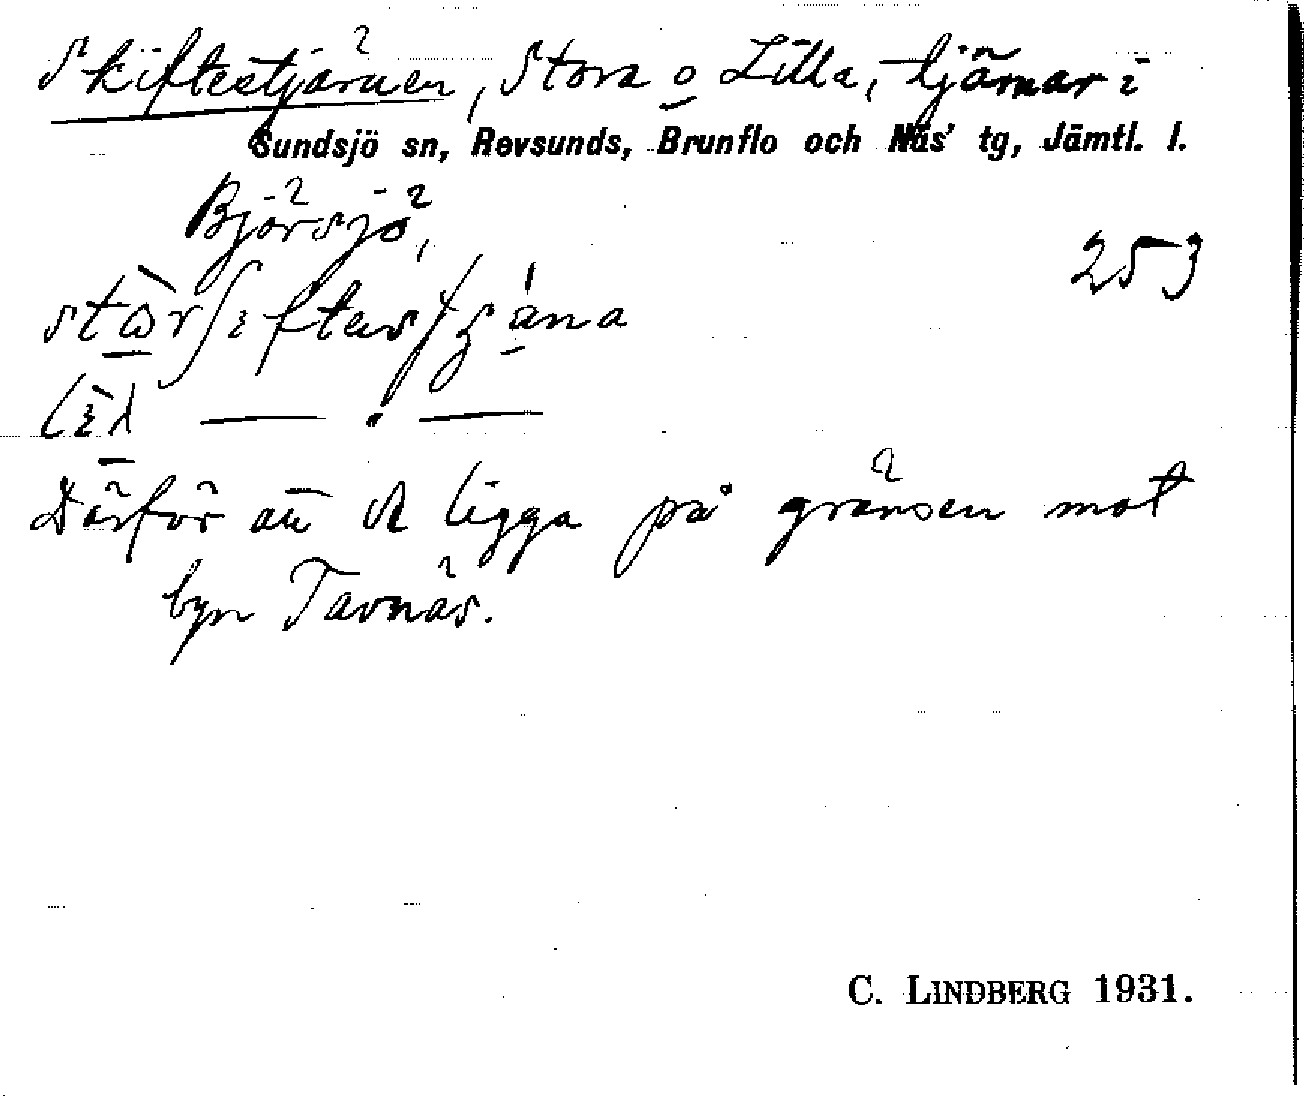 Skiftestjärnen, Stora o Lilla, tjärnar i
Sundsjö sn, Revsunds, Brunflo och Näs' tg, Jämtl. l.
Björsjö,
253
Därför att de ligga på gränsen mot
byn Tavnäs.
C. LINDBERG 1931.